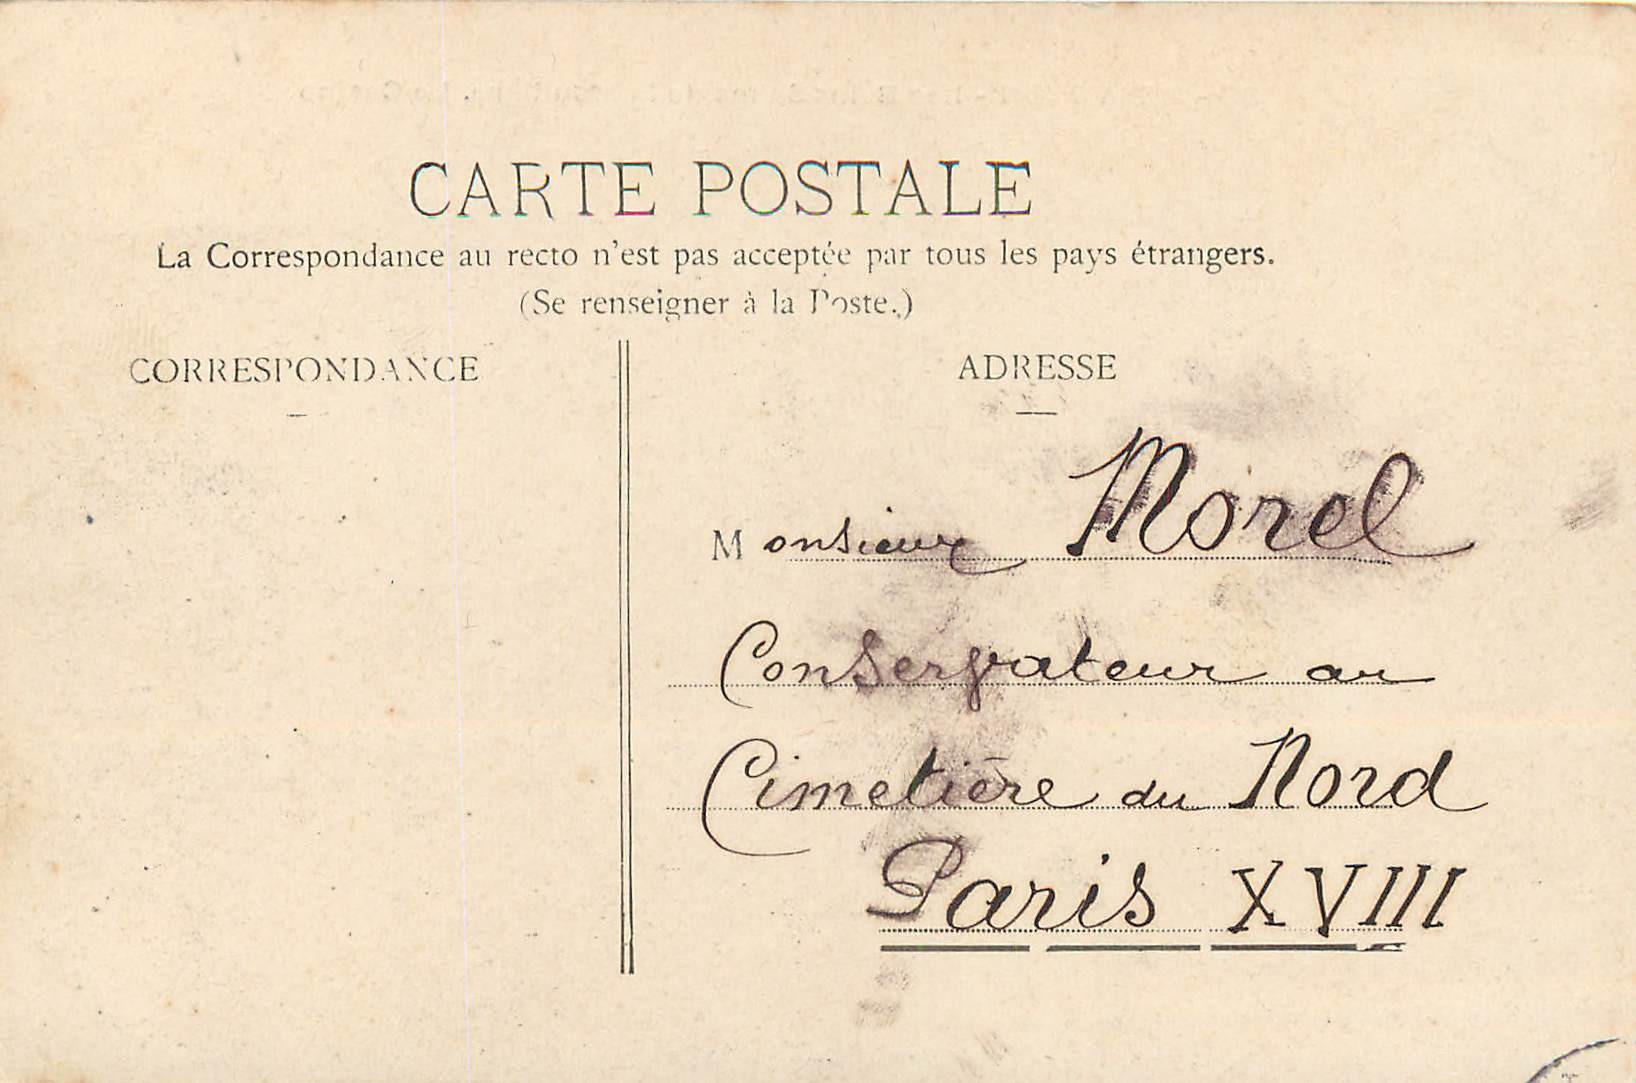 CARTE POSTALE
La Correspondance au recto n'est pas acceptée par tous les pays étrangers.
(Se renseigner à la Poste.)
CORRESPONDANCE
ADRESSE
Monsieur Morel
Conservateur au
Cimetière du Nord
Paris XVIII